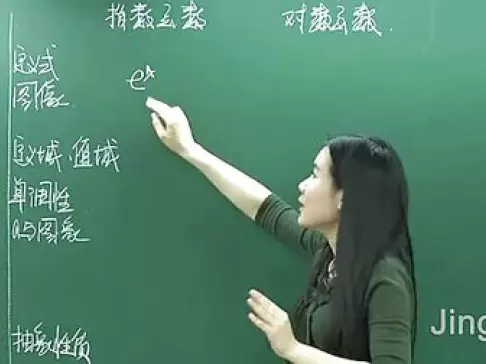 指数函数 对数函数.
定义式
图像
e^x
定义域、值域
单调性
与图象
抽象性质
Jing